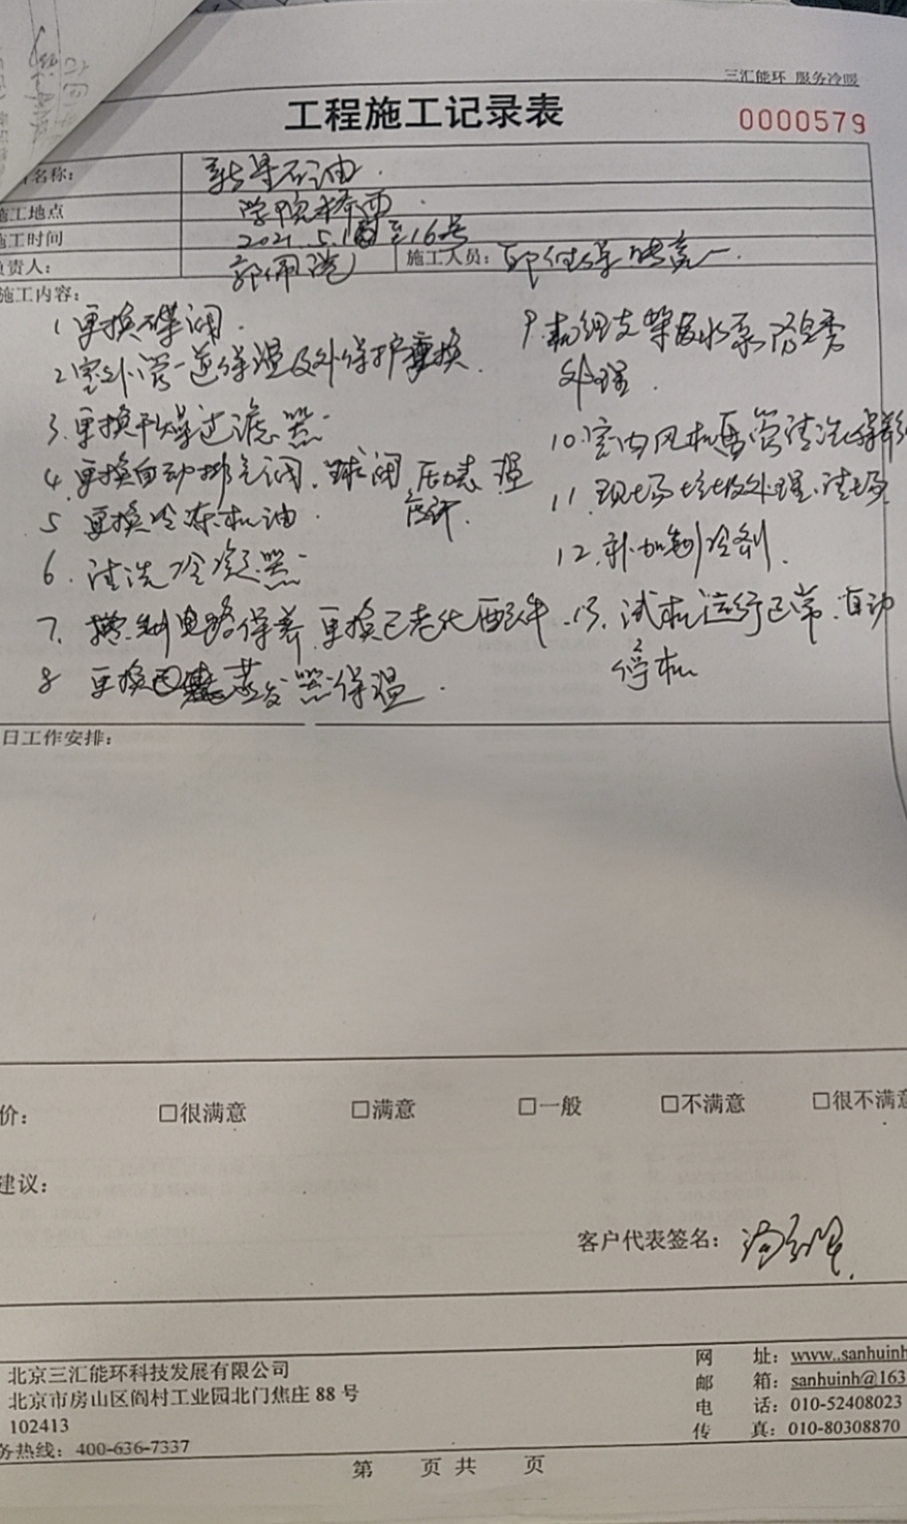 三汇能环 服务冷暖
工程施工记录表
0000579
名称: 石油
施工地点 学院桥西
施工时间 2021.5.1 至16号
负责人: 郭佩
施工人员:
施工内容:
1 更换碟阀.
2 室外管道保温及外保护重换.
3. 更换干燥过滤器
4. 更换自动排气阀. 球阀 压力表 温度计.
5 更换冷冻机油.
6. 清洗冷凝器
7. 控制电路保养 更换已老化配件.
8 更换 蒸发器保温.
9. 机组支架及水泵防锈
处理.
10. 室内风机盘管清洗保养
11. 现场垃圾处理. 清场
12. 补加制冷剂.
13. 试机运行正常. 自动
停机
日工作安排:
价: □很满意 □满意 □一般 □不满意 □很不满意
建议:
客户代表签名:
北京三汇能环科技发展有限公司
北京市房山区阎村工业园北门焦庄 88 号
102413
务热线: 400-636-7337
网 址: www..sanhuinh
邮 箱: sanhuinh@163
电 话: 010-52408023
传 真: 010-80308870
第 页 共 页